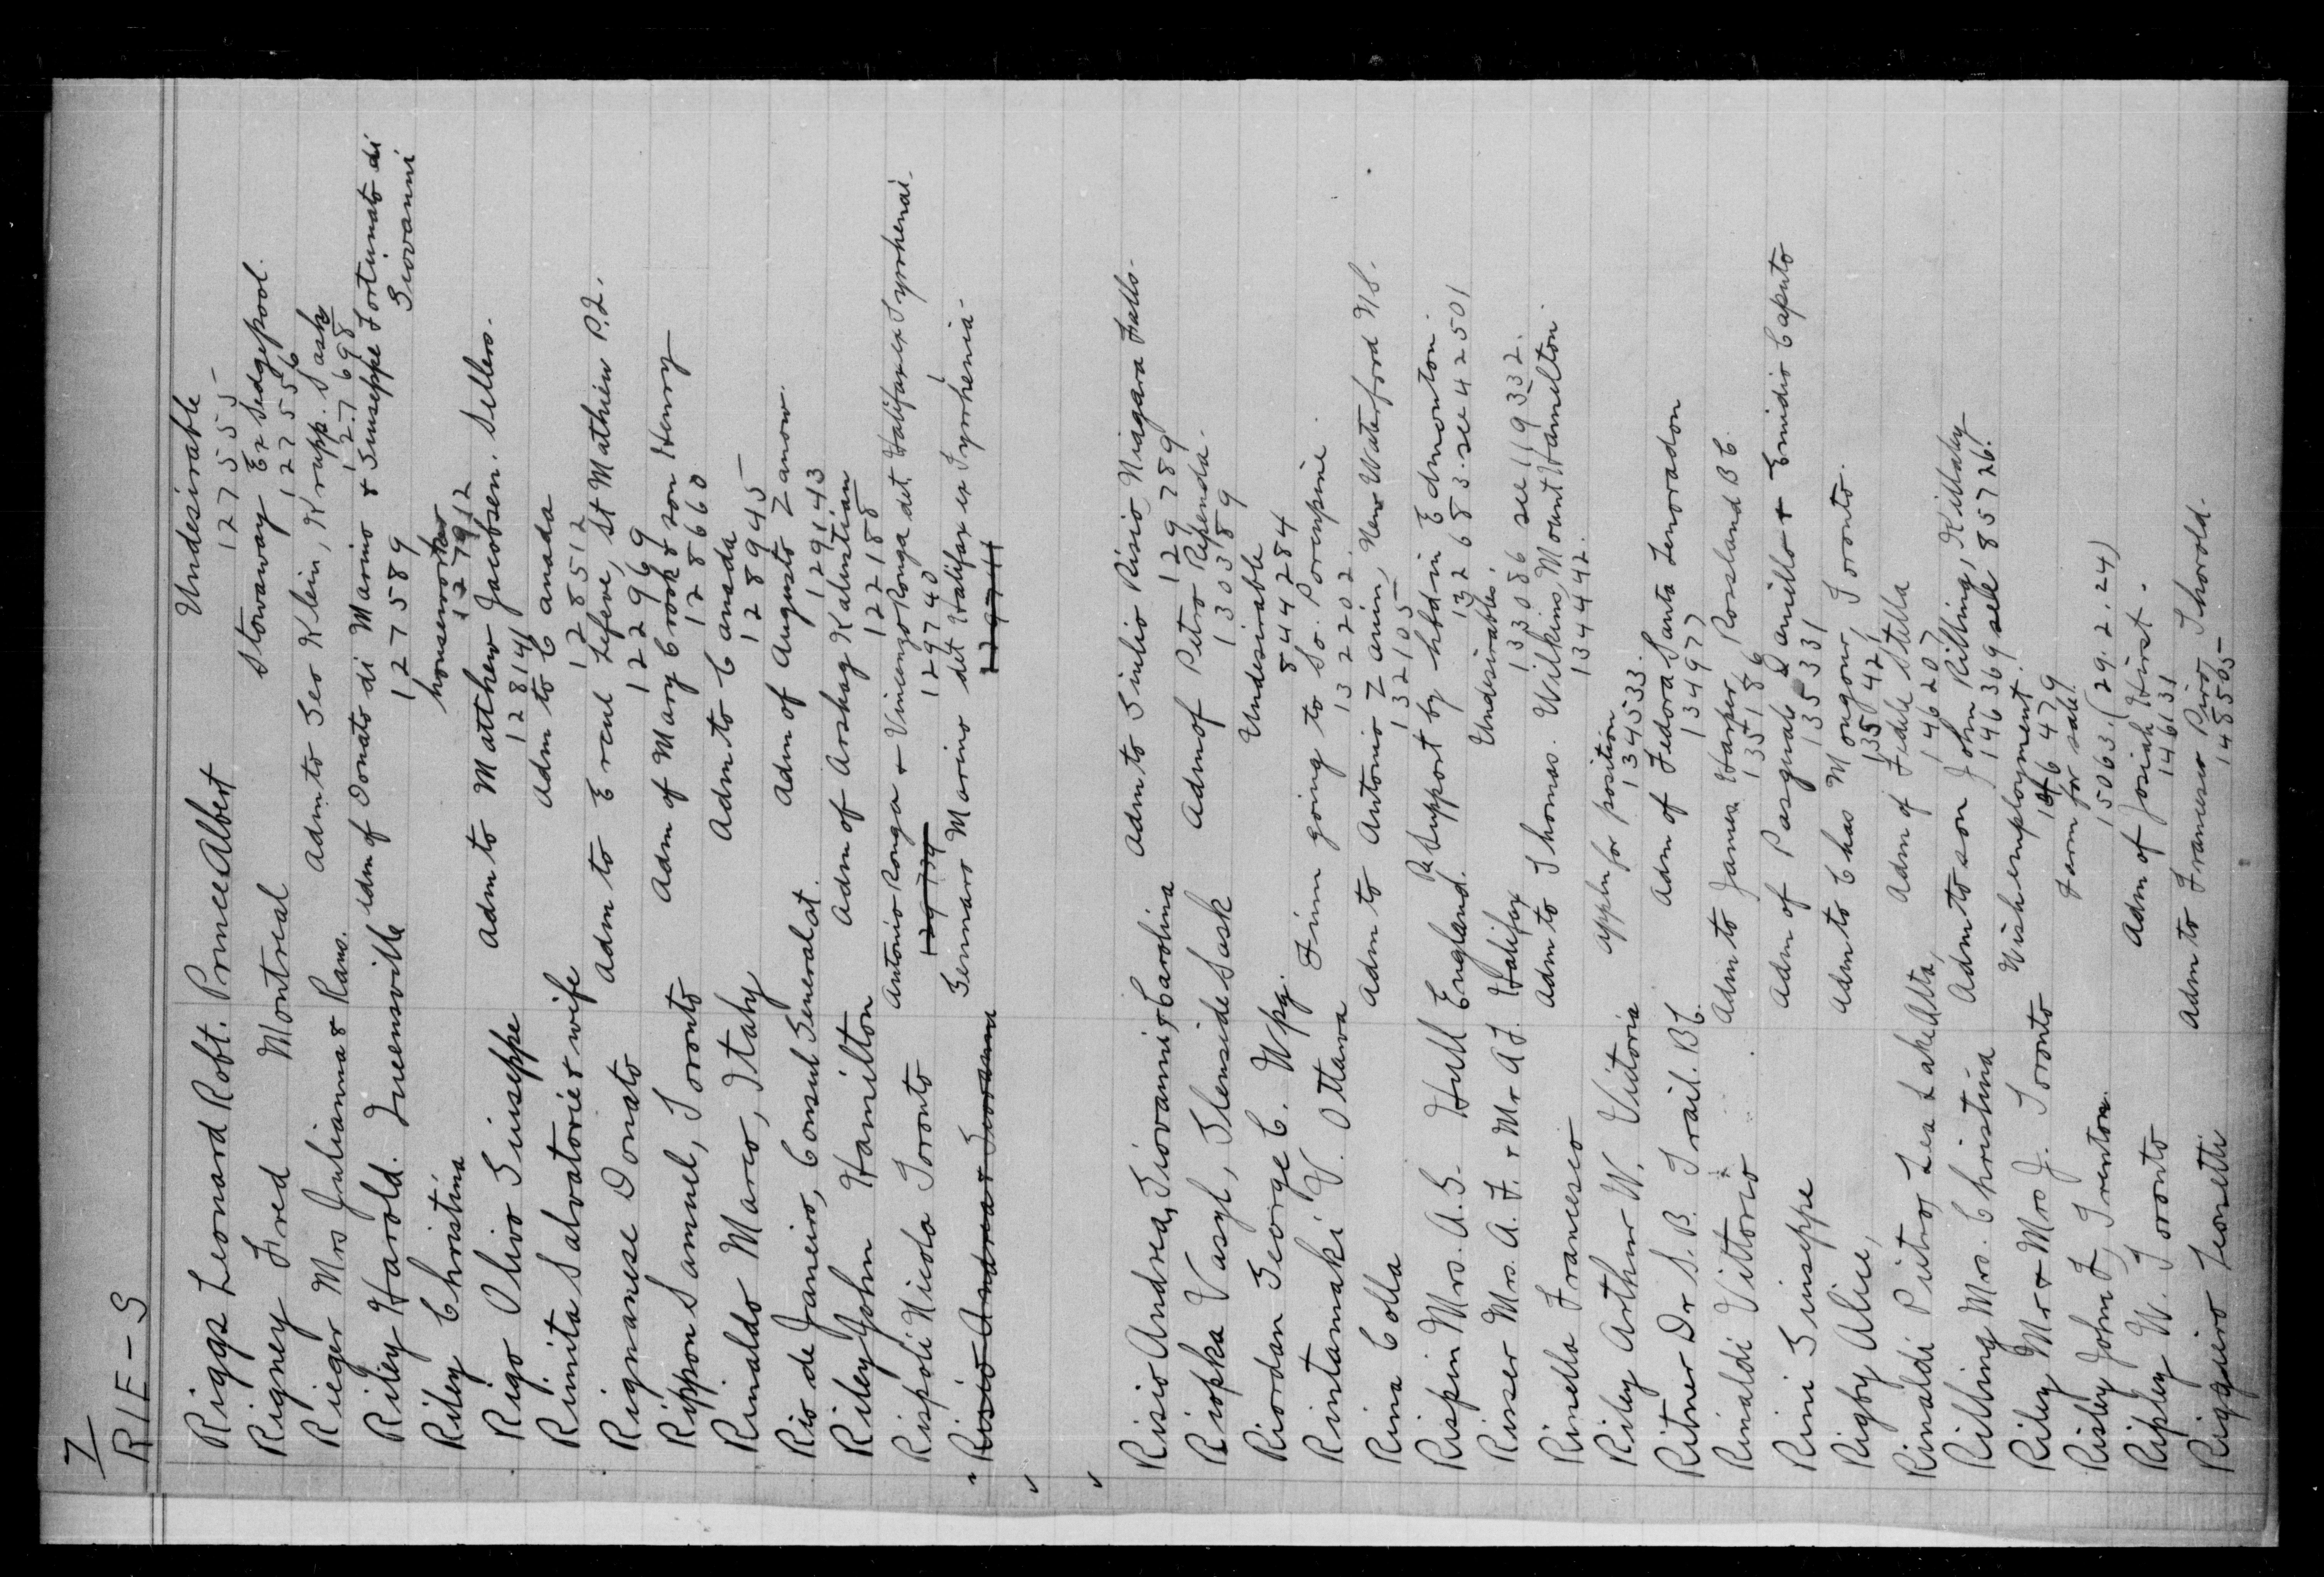 7
RIE-S
Riggs Leonard Robt. Prince Albert Undesirable
127555
Rigney Fred Montreal Stowaway Ex Sedgepool.
127556
Rieger Mrs Julianna & Rams. Adm to Geo Klein, Krupp. Sask
127698
Riley Harold. Queensville Adm of Donato di Marino & Giuseppe Fortunato di
Giovanni
127589
Riley Christina houseworker
127912
Rigo Olivo Giuseppe Adm to Matthew Jacobsen. Sellers.
128141
Rimita Salvatorie & wife Adm to Canada
128512
Rignanese Donato Adm to Ercul Lefeve, St Mathieu P.Q.
122969
Rippon Samuel, Toronto Adm of Mary Crook & son Henry
128660
Rinaldo Marco, Italy Adm to Canada
128945
Rio de Janeiro, Consul General at. Adm of Augusto Zanow.
129143
Riley John Hamilton Adm of Arshag Kalustian
122188
Rispoli Nicola Toronto Antonio Ronga & Vincenzo Ronga det Halifax ex Tyrrhenia.
129739 129740
Risio Andrea & Giovanni Gennaro Marino det Halifax ex Tyrrhenia.
129741
Risio Andrea, Giovanni & Carolina Adm to Giulio Risio, Niagara Falls.
129789
Riopka Vasyl, Glenside Sask Adm of Petro Rependa.
130389
Riordan George C. Wpg. Undesirable
844284
Rintamaki V. Ottawa Finn going to So. Porcupine.
132202.
Rina Colla Adm to Antonio Zanin, New Waterford NS.
132105
Rispin Mrs. A.G. Hull England. Re Support by hbd in Edmonton.
132683. see 42501
Rinser Mrs. A.F. & Mr A.F. Halifax Undesirables.
133086 see 119332.
Rinella Francesco Adm to Thomas. Wilkins, Mount Hamilton.
134442.
Riley Arthur W. Victoria Appln for position
134533.
Ritner Dr S.B. Trail. BC. Adm of Fedora Santa Lenoradon
134977
Rinaldi Vittorio Adm to James Harper, Rossland BC.
135186
Rini Giuseppe Adm of Pasquale Daniello & Emidio Caputo
135331
Rigby Alice, Adm to Chas Mongour, Toronto.
135421
Rinaldi Pietro, Lea Lake Alta, Adm of Fidele Stella
146207
Rilling Mrs. Christina Adm to son John Rilling, Killaly
146369 see 85726.
Riley Mr & Mrs J. Toronto Wish employment.
146479
Risley John L, Trenton. Farm for sale.
15063. (29.2.24)
Ripley W. Toronto Adm of Josiah Hirst.
146131
Riggueiro Leonetti Adm to Francesco Piro, Thorold.
148505